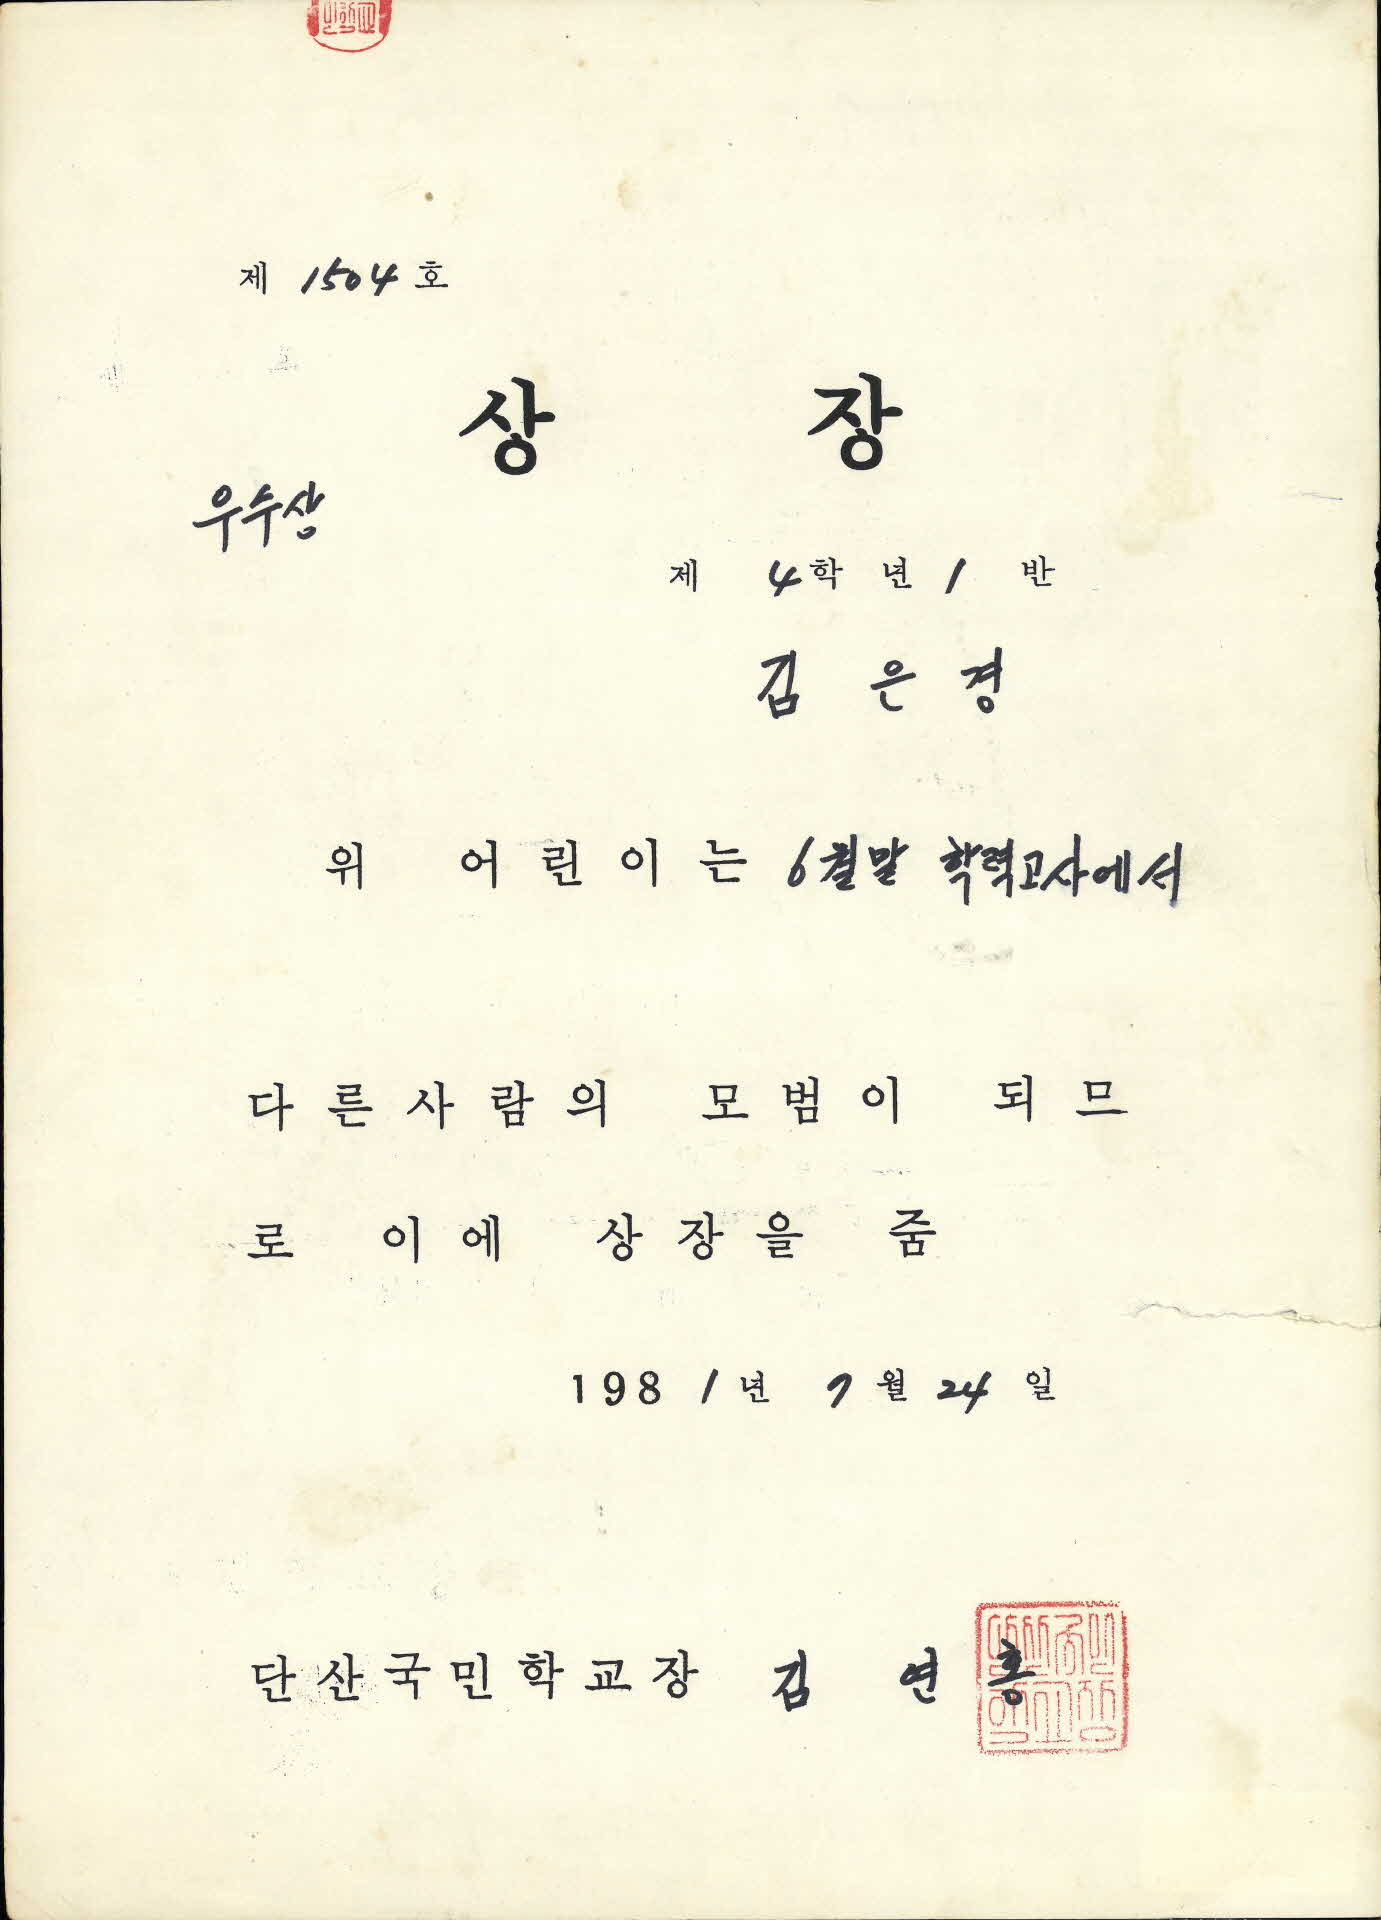 제 1504 호
상 장
우수상
제 4학 년 1 반
김 은 경
위 어린이는 6월말 학력고사에서
다른사람의 모범이 되므
로 이에 상장을 줌
1981년 7월 24일
단산국민학교장 김 연 홍